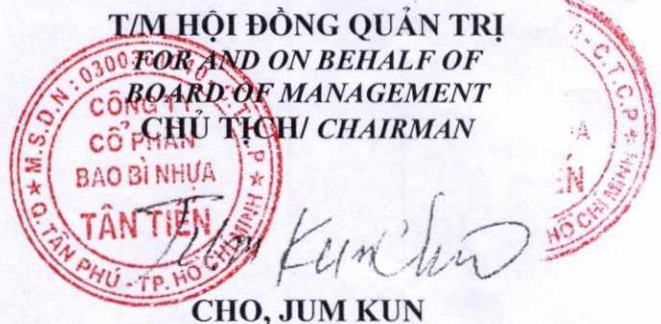 T/M HỘI ĐỒNG QUẢN TRỊ
FOR AND ON BEHALF OF
BOARD OF MANAGEMENT
CHỦ TỊCH/ CHAIRMAN
M.S.D.N: 0300
C.T.C.P
CÔNG TY
CỔ PHẦN
BAO BÌ NHỰA
TÂN TIẾN
Q. TÂN PHÚ - TP. HỒ CHÍ MINH
C.T.C.P
HỒ CHÍ MINH
Jum Kun Cho
CHO, JUM KUN